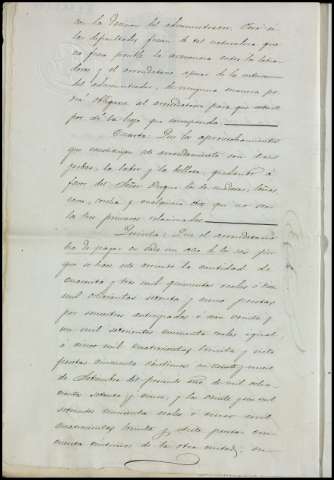 con la Decision del administrador. Pero si
las dificultades fueran de tal naturaleza que
no fuera posible la avenencia entre los labra-
dores y el arrendatario apesar de la interven
del administrador, de ninguna manera po
drá obligarse al arrendatario para que
por de la baja que corresponda.
Cuarta: Que los aprovechamientos
que constituyen el arrendamiento son los
pastos, la labor y la bellota, quedando á
favor del Señor Duque la de maderas, leñas
caza, corcha y cualquiera otra que no sea
las tres primeras relacionadas.
Quinta: Que el arrendatario
ha de pagar en cada un año de los seis por
que se hace este arriendo la cantidad de
cuarenta y tres mil quinientos reales ó diez
mil ochocientas setenta y cinco pesetas
por semestres anticipados ó sean veinte y
un mil setecientos cincuenta reales igual
á cinco mil cuatrocientas treinta y siete
pesetas cincuenta céntimos en veinte y nueve
de Setiembre del presente año de mil ocho
cientos setenta y cinco, y los veinte y un mil
setecientos cincuenta reales ó cinco mil
cuatrocientas treinta y siete pesetas cin
cuenta céntimos de la otra mitad, en